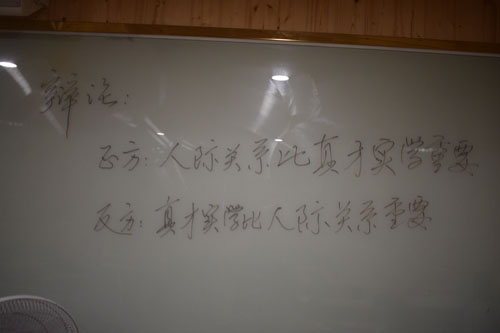 辩论：
正方：人际关系比真才实学重要
反方：真才实学比人际关系重要